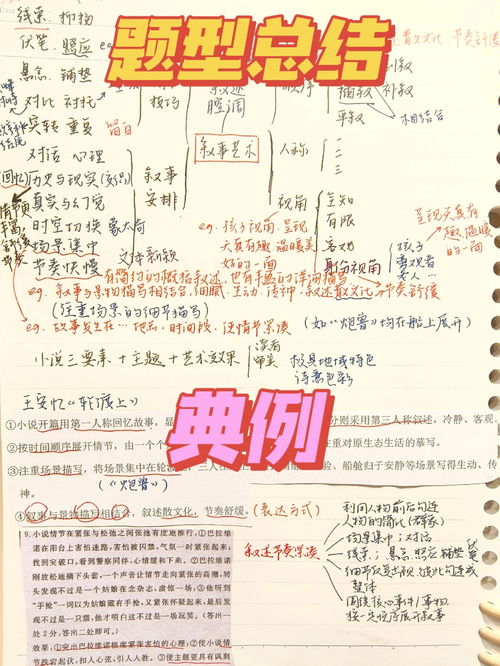 线索 抑扬
题型总结
伏笔 照应 eg
悬念 铺垫
技巧
叙述腔调
顺序
插叙 补叙
平叙
相结合
对比 衬托
突转 重复 留白
叙事艺术
人称
一
二
三
对话 心理
回忆 历史与现实
叙事安排
真实与幻觉
时空切换 蒙太奇
场景集中
节奏快慢
文体新颖
视角
全知
有限
客观
身份视角
孩子
女人...
呈现天真有趣温暖的一面
eg. 孩子视角,呈现天真有趣,温暖美好的一面
有简约的概括叙述,也有丰盈的详细描写
eg. 叙事与景物描写相结合,细腻、生动、传神,叙述散文化,节奏舒缓
(注重场景的细节描写)
eg. 故事发生在...地点,时间段,使情节紧凑
(如《炮兽》均在船上展开)
小说三要素+主题+艺术效果
读者
审美
极具地域特色
诗意色彩
典例
王安忆《轮渡上》
①小说开篇用第一人称回忆故事,显
分则采用第三人称叙述,冷静、客观,
②按时间顺序展开情节,由一个个
重对原生态生活的摹写。
③注重场景描写,将场景集中在轮渡上,三人在
验、船舱归于安静等场景写得生动、传神。
(《炮兽》)
④叙事与景物描写相结合,叙述散文化,节奏舒缓。(表达方式)
9.小说情节在紧张与松弛之间张弛有度地推行;①巴拉维
诺在阳台上害怕迷路,害怕被囚禁,气氛一时紧张起来;
找到突破口,看到警察同伴,心情缓和下来。②巴拉维诺
刚放松摘下头套,一个声音让情节走向紧张的高潮,转
头发现不过是一个姑娘在念杂志,虚惊一场;③他听到
“手枪”一词以为姑娘藏有手枪,又紧张怀疑起来,最后发
现不过是一只猫,他才明白这不过是一场玩笑。(答出一
处2分,答出二处即可。)
效果:①突出巴拉维诺极度紧张害怕的心理;②使小说情
节跌宕起伏,扣人心弦,引人入胜。③使主题更具有讽刺
叙述节奏紧凑
利用人物前后勾连
人物的简化(群像)
场景集中;对话
线索;悬念,照应,铺垫
细节反复出现,彼此勾连成整体
围绕核心事件/事物
按一定顺序展开叙事